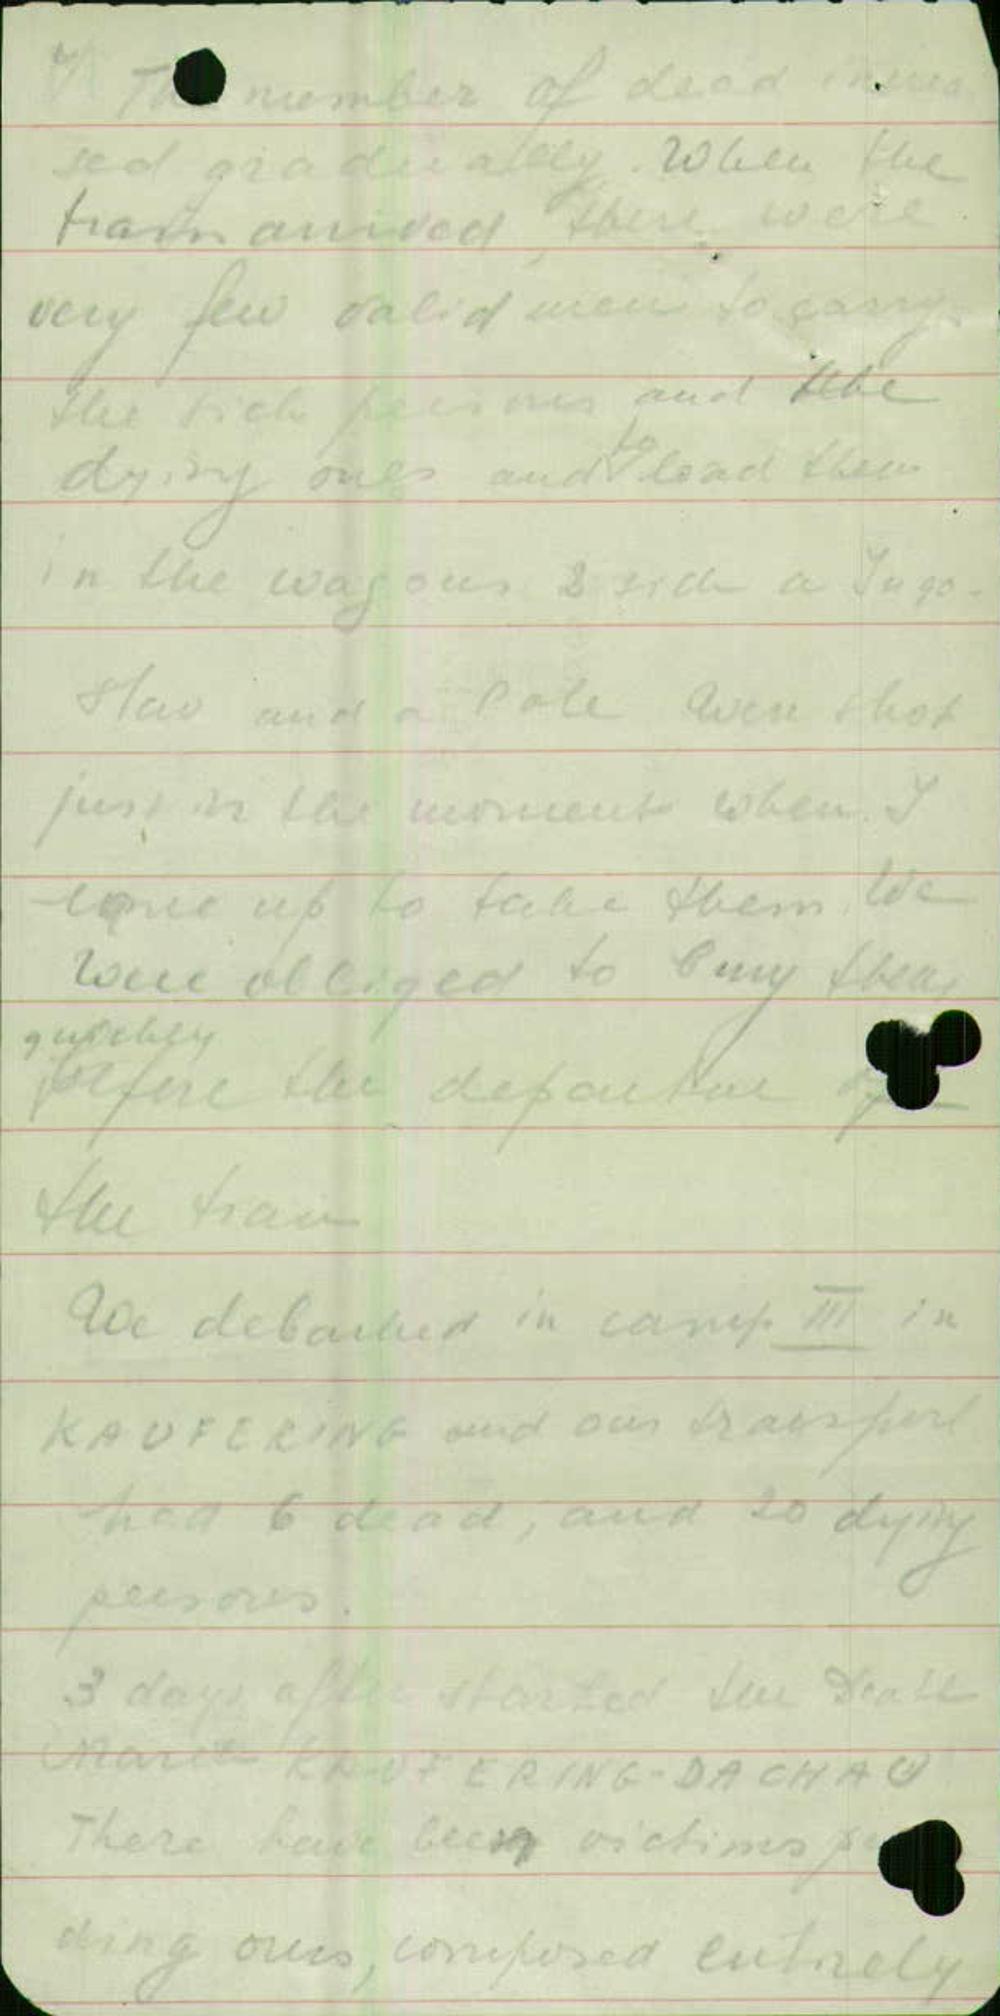 The number of dead increa
sed gradually. When the
train arrived, there were
very few valid men to carry
the sick persons and the
dying ones and to load them
in the wagons. 2 sick a Jugo-
slav and a Pole were shot
just in the moment when I
come up to take them. We
were obliged to bury them
quickly
before the departure of
the train
We debarked in camp III in
KAUFERING and our transport
had 6 dead, and 20 dying
persons.
3 days after started the Death
March KAUFERING-DACHAU
There have been victims
ding ours, composed entirely